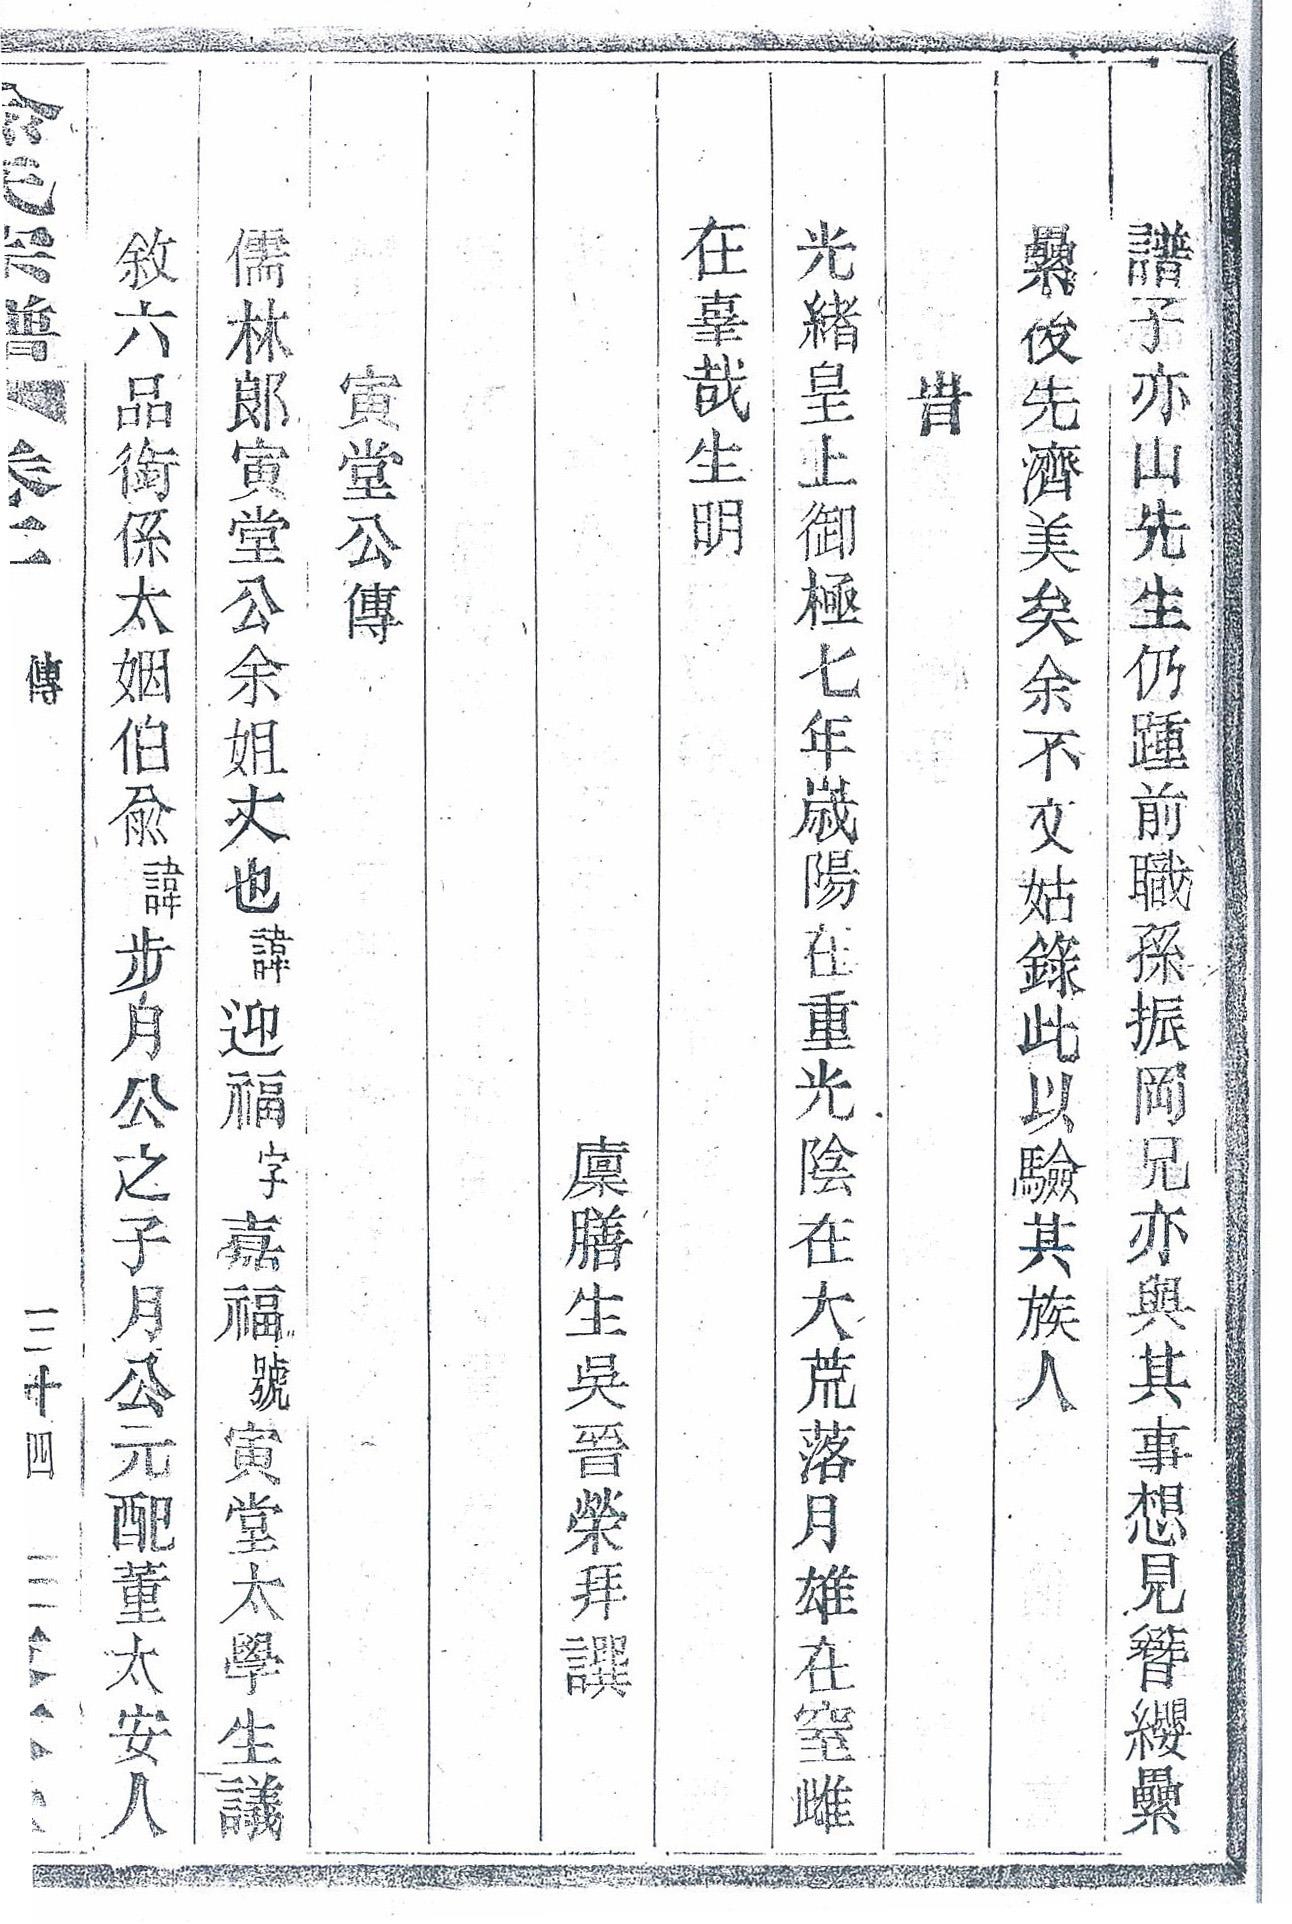 譜子亦山先生仍踵前職孫振岡兄亦與其事想見簪纓纍
纍後先濟美矣余不文姑錄此以驗其族人
旹
光緒皇上御極七年歲陽在重光陰在大荒落月雄在窒雌
在辜哉生明
廩膳生吳晉榮拜譔
寅堂公傳
儒林郎寅堂公余姐丈也諱迎福字嘉福號寅堂太學生議
敘六品銜係太姻伯俞諱步月公之子月公元配董太安人
宗譜 卷二 傳 二十四